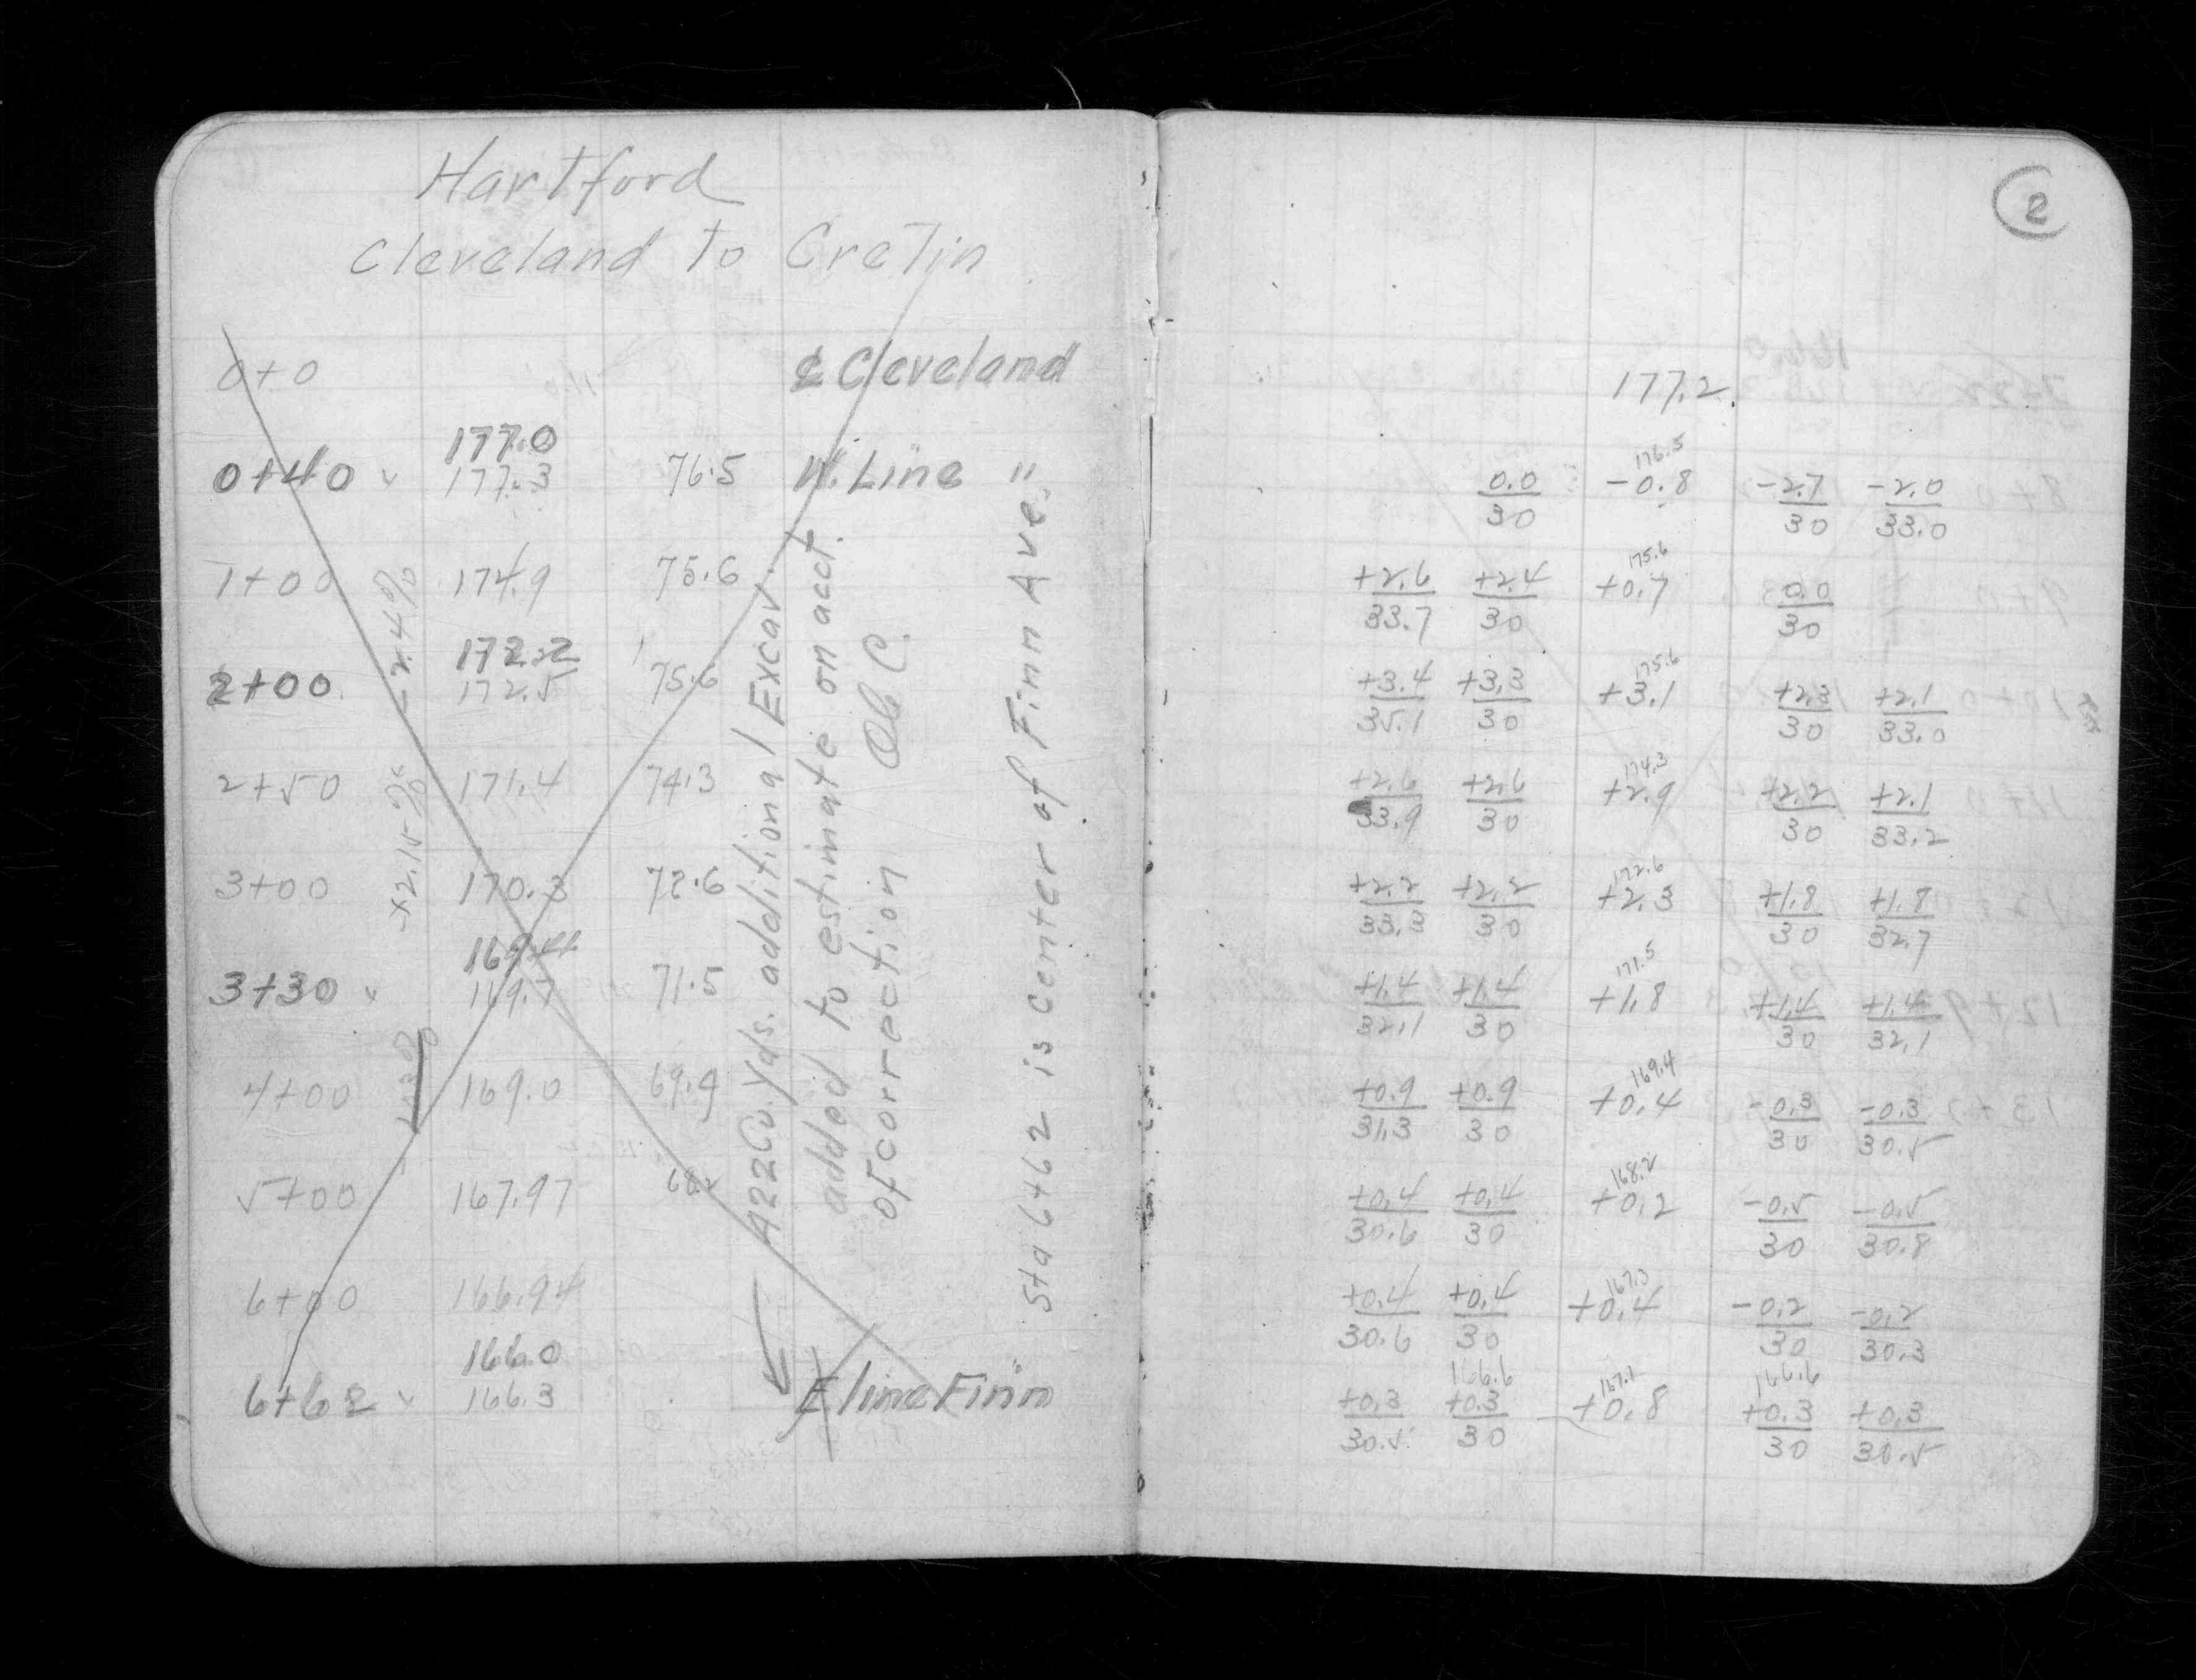 Hartford
Cleveland to Cretin
0+0 ¢ Cleveland
177.0
0+40 177.3 76.5 W. Line "
1+00 174.9 75.6
172.2
2+00 172.5 75.6
2+50 171.4 74.3
3+00 170.3 72.6
169.4
3+30 169.7 71.5
4+00 169.0 69.4
5+00 167.97 68.2
6+00 166.94
166.0
6+62 166.3 E line Finn
-2.4%
422 Cu. Yds. additional Excav.
added to estimate on acct.
of correction
Sta 6+62 is Center of Finn Ave.
2
177.2
176.5
0.0 -0.8 -2.7 -2.0
30 30 33.0
175.6
+2.6 +2.4 +0.7 0.0
33.7 30 30
175.6
+3.4 +3.3 +3.1 +2.3 +2.1
35.1 30 30 33.0
174.3
+2.6 +2.6 +2.9 +2.2 +2.1
33.9 30 30 33.2
172.6
+2.2 +2.2 +2.3 +1.8 +1.8
33.3 30 30 32.7
171.5
+1.4 +1.4 +1.8 +1.4 +1.4
32.1 30 30 32.1
169.4
+0.9 +0.9 +0.4 -0.3 -0.3
31.3 30 30 30.5
168.2
+0.4 +0.4 +0.2 -0.5 -0.5
30.6 30 30 30.8
167.3
+0.4 +0.4 +0.4 -0.2 -0.2
30.6 30 30 30.3
166.6 167.1 166.6
+0.3 +0.3 +0.8 +0.3 +0.3
30.5 30 30 30.5